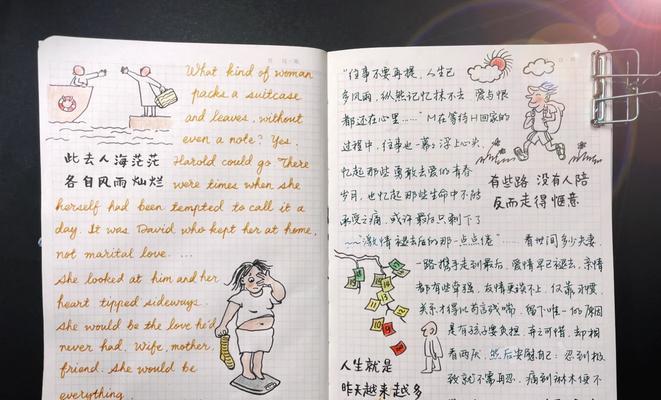 What kind of woman
packs a suitcase
and leaves, without
even a note? Yes,
Harold could go There
were times when she
herself had been tempted to call it a
day. It was David who kept her at home,
not marital love. ...
She looked at him and her
heart tipped sideways.
She would be the love he'd
never had. Wife, mother,
friend. She would be
everything.
此去人海茫茫
各自风雨灿烂
"往事不要再提，人生已
多风雨，纵然记忆抹不去 爱与恨
都还在心里……" M在等待H回家的
过程中，往事也一幕幕浮上心头，
忆起那些勇敢去爱的青春
岁月，也忆起那些生命中不能
承受之痛，或许最后只剩下了
"激情褪去后的那一点点倦"…… 看世间多少夫妻，
一路携手走到最后，爱情早已褪去，亲情
都有些牵强，友情更谈不上，仅靠习惯
关系才得以苟言残喘，留下唯一的原因
是有孩子要负担，弃之可惜，却相
看两厌，然后安慰自己：忍到极
致就不需再忍，痛到麻木便不
有些路 没有人陪
反而走得惬意
10
11
9
人生就是
昨天越来越多